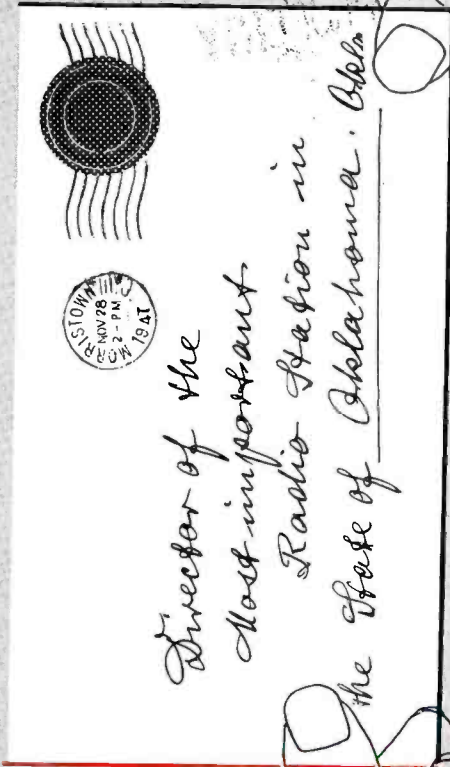 MORRISTOWN
NOV 28
2 - PM
1947
Director of the
Most important
Radio Station in
the State of Oklahoma. Okla